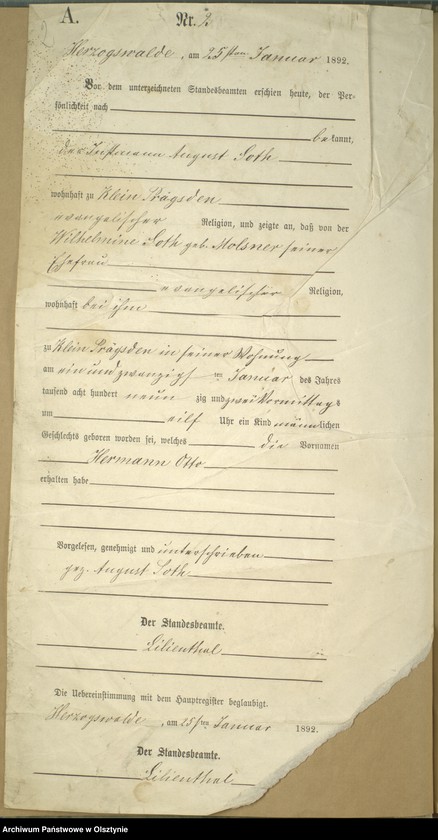 A.
Nr. 2
Herzogswalde, am 25sten Januar 1892.
Vor dem unterzeichneten Standesbeamten erschien heute, der Per-
sönlichkeit nach
bekannt,
der Instmann August Soth
wohnhaft zu Klein Prägsden
evangelischer Religion, und zeigte an, daß von der
Wilhelmine Soth geb. Molsner seiner
Ehefrau
evangelischer Religion,
wohnhaft bei ihm
zu Klein Prägsden in seiner Wohnung
am ein und zwanzigsten Januar des Jahres
tausend acht hundert neun zig und zwei Vormittags
um eilf Uhr ein Kind männlichen
Geschlechts geboren worden sei, welches die Vornamen
Hermann Otto
erhalten habe
Vorgelesen, genehmigt und unterschrieben
gez. August Soth
Der Standesbeamte.
Lilienthal
Die Uebereinstimmung mit dem Hauptregister beglaubigt.
Herzogswalde, am 25sten Januar 1892.
Der Standesbeamte.
Lilienthal
Archiwum Państwowe w Olsztynie